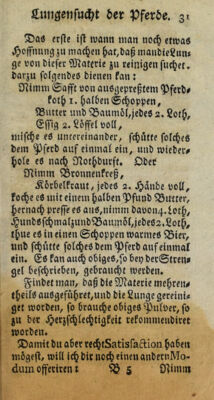 Lungensucht der Pferde. 31
Das erste ist wann man noch etwas
Hoffnung zu machen hat, daß man die Lun-
ge von dieser Materie zu reinigen suchet.
darzu folgendes dienen kan:
Nimm Safft von ausgepreßtem Pferd-
koth 1. halben Schoppen,
Butter und Baumöl, jedes 2. Loth,
Essig 2. Löffel voll,
mische es untereinander, schütte solches
dem Pferd auf einmal ein, und wieder-
hole es nach Nothdurft. Oder
Nimm Bronnenkreß,
Körbelkraut, jedes 2. Hände voll,
koche es mit einem halben Pfund Butter,
hernach presse es aus, nimm davon 4. Loth,
Hundsschmalz und Baumöl, jedes 2. Loth,
thue es in einen Schoppen warmes Bier,
und schütte solches dem Pferd auf einmal
ein. Es kan auch obiges, so bey der Stren-
gel beschrieben, gebraucht werden.
Findet man, daß die Materie mehren-
theils ausgeführet, und die Lunge gereini-
get worden, so brauche obiges Pulver, so
zu der Herzschlechtigkeit rekommendiret
worden.
Damit du aber recht Satisfaction haben
mögest, will ich dir noch einen andern Mo-
dum offeriren:
B 5 Nimm